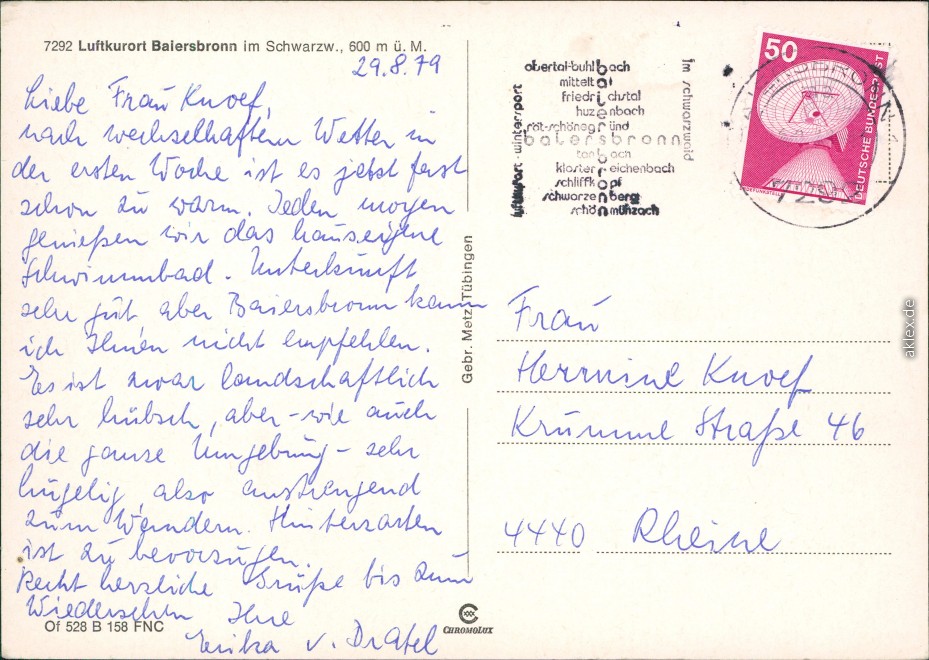 7292 Luftkurort Baiersbronn im Schwarzw., 600 m ü. M.
29.8.79
Liebe Frau Knoef,
nach wechselhaftem Wetter in
der ersten Woche ist es jetzt fast
schon zu warm. Jeden morgen
genießen wir das hauseigene
Schwimmbad. Unterkunft
sehr gut aber Baiersbronn kann
ich Ihnen nicht empfehlen.
Es ist zwar landschaftlich
sehr hübsch, aber – wie auch
die ganze Umgebung – sehr
hügelig, also anstrengend
zum Wandern. Hinterzarten
ist zu bevorzugen.
Recht herzliche Grüße bis zum
Wiedersehen Ihre
Erika v.
Of 528 B 158 FNC
Gebr. Metz, Tübingen
CHROMOLUX
obertal-buhlbach
mitteltal
friedrichstal
huzenbach
röt-schönegründ
baiersbronn
tonbach
klosterreichenbach
schliffkopf
schwarzenberg
schönmünzach
im schwarzwald
luftkurort · wintersport
50
DEUTSCHE BUNDESPOST
7292
Frau
Hermine Knoef
Krumme Straße 46
4440 Rheine
aklex.de